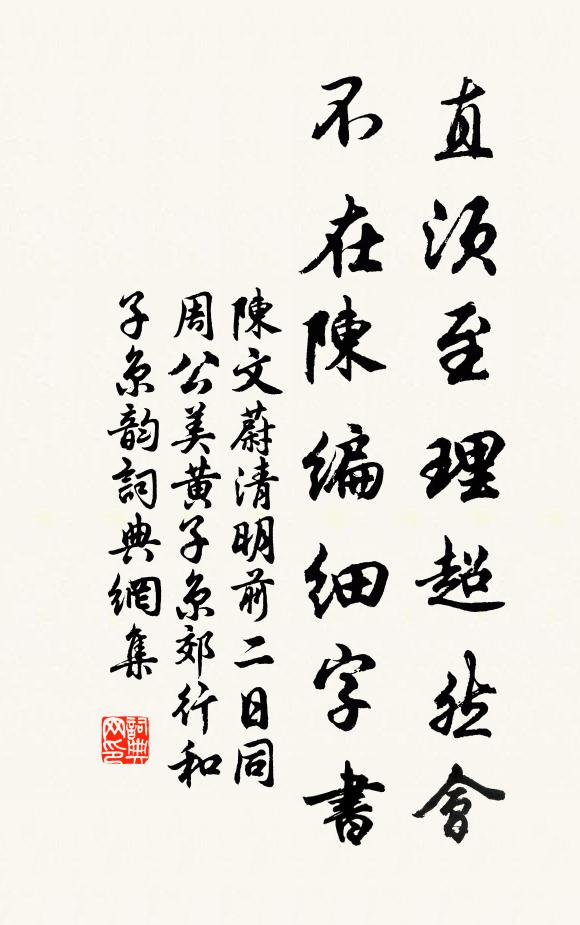 直須至理超然會
不在陳編細字書
陳文蔚清明前二日同
周公美黃子京郊行和
子京韵詞典網集
詞典网印